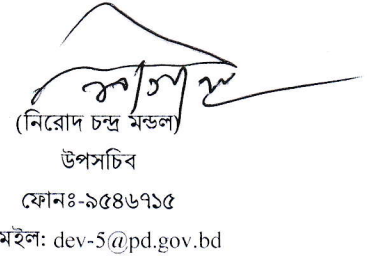 (নিরোদ চন্দ্র মন্ডল)
উপসচিব
ফোনঃ-৯৫৪৬৭১৫
মইল: dev-5@pd.gov.bd